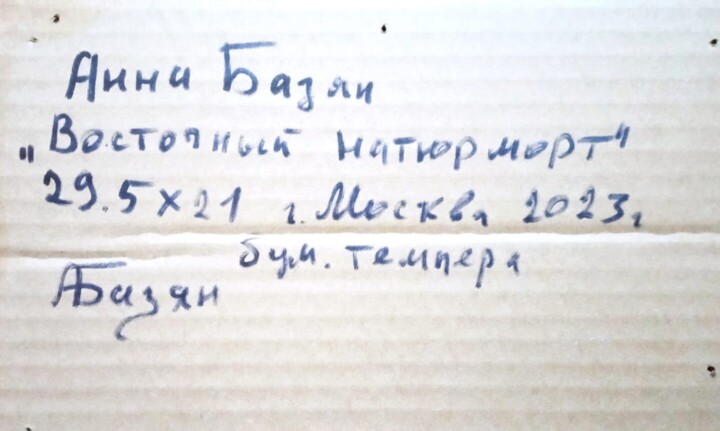 Анна Базян
"Восточный натюрморт"
29.5×21 г. Москва 2023г
бум. темпера
АБазян